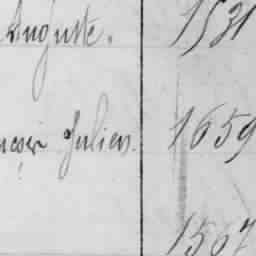 Auguste. 1531
Julien. 1659
1567